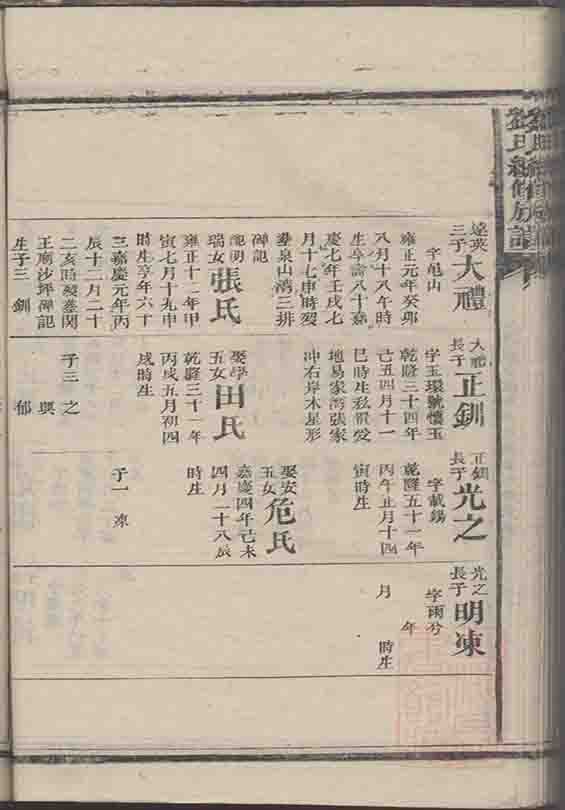 氏續修族譜
遠英
三子
大禮
字旭山
雍正元年癸卯
八月十八午時
生享齡八十嘉
慶七年壬戌七
月十七申時歿
泉山灣三排
碑記
瑞女
張氏
雍正十二年甲
寅七月十九申
時生享年六十
三嘉慶元年丙
辰十二月二十
二亥時歿墓関
王廟沙坪碑記
生子三 釧
大禮
長子
正釧
字玉環號懷玉
乾隆三十四年
己五四月十一
巳時生私置受
地易家灣張家
冲右岸木星形
娶學
五女
田氏
乾隆三十一年
丙戌五月初四
戌時生
子三 之
與
郁
正釧
長子
光之
字載錫
乾隆五十一年
丙午正月十四
寅時生
娶安
五女
危氏
嘉慶四年己未
四月二十八辰
時生
子一 凍
光之
長子
明凍
字雨兮
年
月 時生